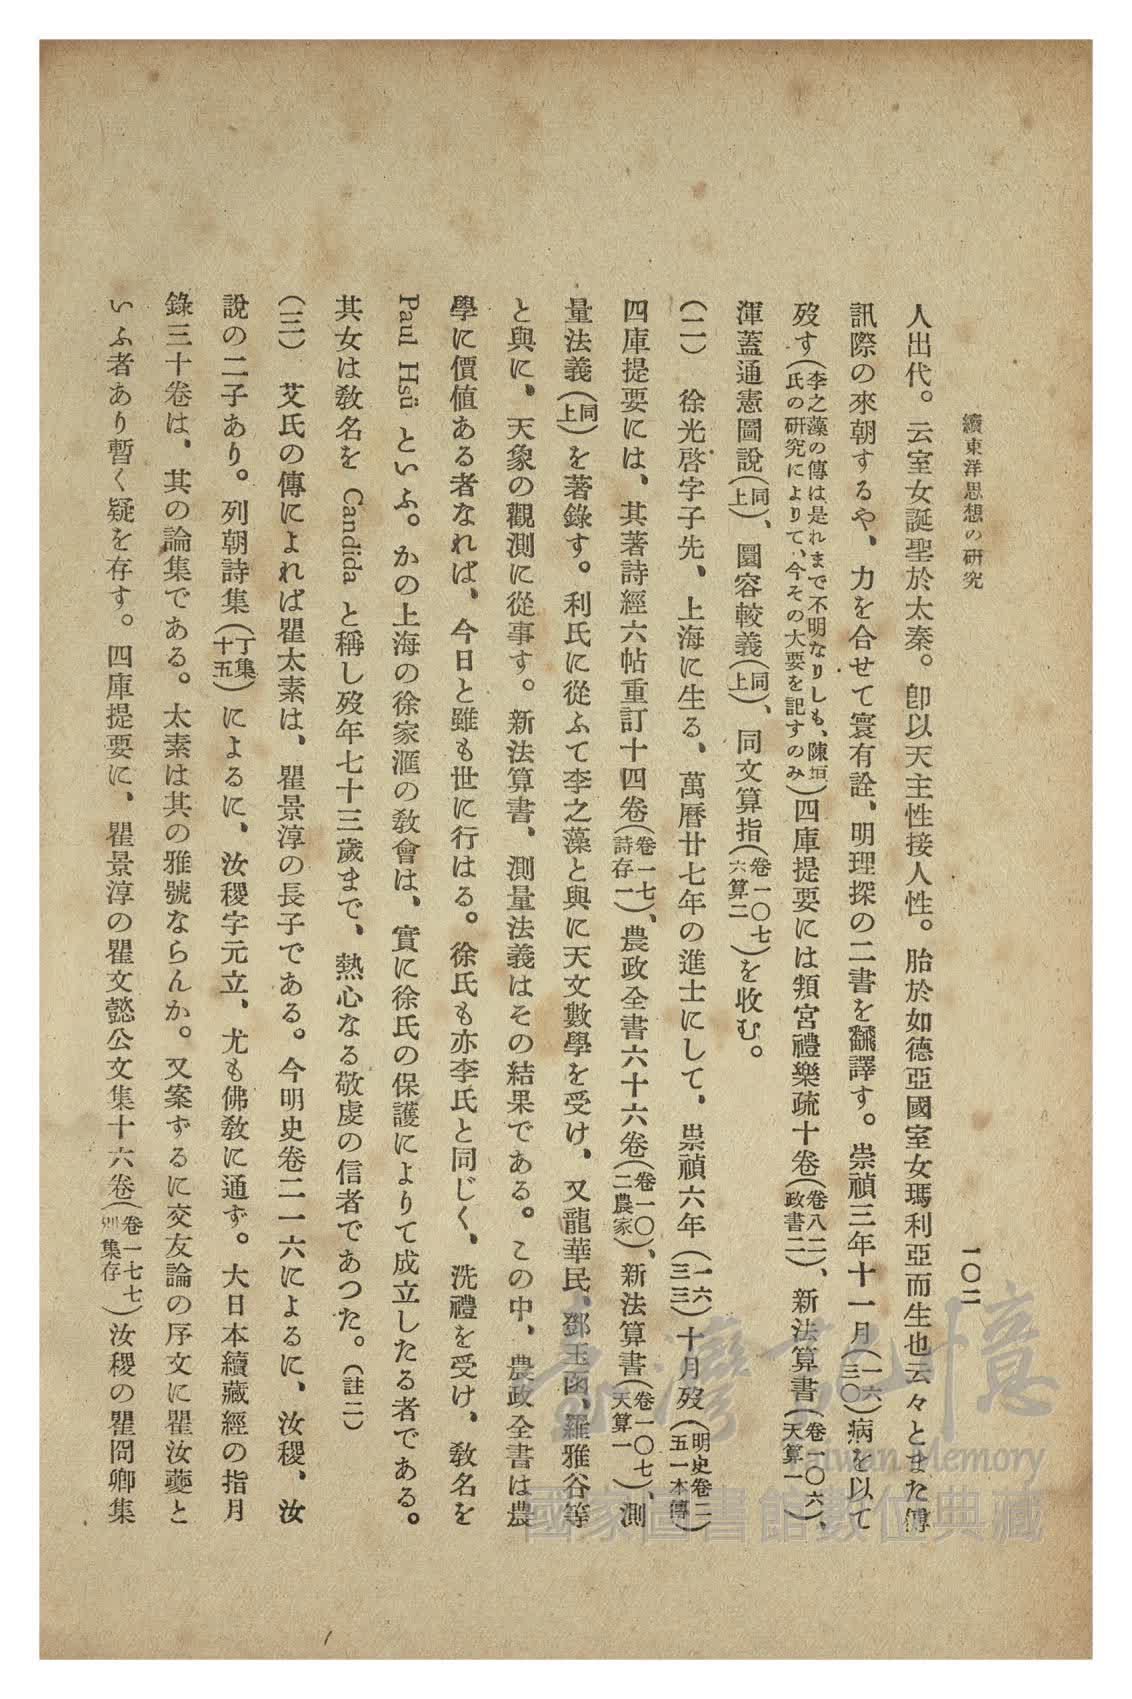 續東洋思想の研究
一〇二
人出代。云室女誕聖於太秦。卽以天主性接人性。胎於如德亞國室女瑪利亞而生也云々とまた傅
訊際の來朝するや、力を合せて寰有詮、明理探の二書を飜譯す。崇禎三年十一月(一六三〇)病を以て
歿す(李之藻の傳は是れまで不明なりしも、陳垣氏の研究によりて、今その大要を記すのみ)四庫提要には頖宮禮樂疏十卷(卷八二政書二)、新法算書(卷一〇六天算一)、
渾蓋通憲圖說(同上)、圜容較義(同上)、同文算指(卷一〇七六算二)を收む。
(二) 徐光啓字子先、上海に生る、萬曆廿七年の進士にして、崇禎六年(一六三三)十月歿(明史卷二五一本傳)
四庫提要には、其著詩經六帖重訂十四卷(卷一七詩存一)、農政全書六十六卷(卷一〇二農家)、新法算書(卷一〇七天算一)、測
量法義(同上)を著錄す。利氏に從ふて李之藻と與に天文數學を受け、又龍華民、鄧玉函、羅雅谷等
と與に、天象の觀測に從事す。新法算書、測量法義はその結果である。この中、農政全書は農
學に價値ある者なれば、今日と雖も世に行はる。徐氏も亦李氏と同じく、洗禮を受け、敎名を
Paul Hsü といふ。かの上海の徐家滙の敎會は、實に徐氏の保護によりて成立したる者である。
其女は敎名を Candida と稱し歿年七十三歲まで、熱心なる敬虔の信者であつた。(註二)
(三) 艾氏の傳によれば瞿太素は、瞿景淳の長子である。今明史卷二一六によるに、汝稷、汝
說の二子あり。列朝詩集(丁集十五)によるに、汝稷字元立、尤も佛敎に通ず。大日本續藏經の指月
錄三十卷は、其の論集である。太素は其の雅號ならんか。又案ずるに交友論の序文に瞿汝夔と
いふ者あり暫く疑を存す。四庫提要に、瞿景淳の瞿文懿公文集十六卷(卷一七七別集存)汝稷の瞿冏卿集
臺灣記憶
Taiwan Memory
國家圖書館數位典藏